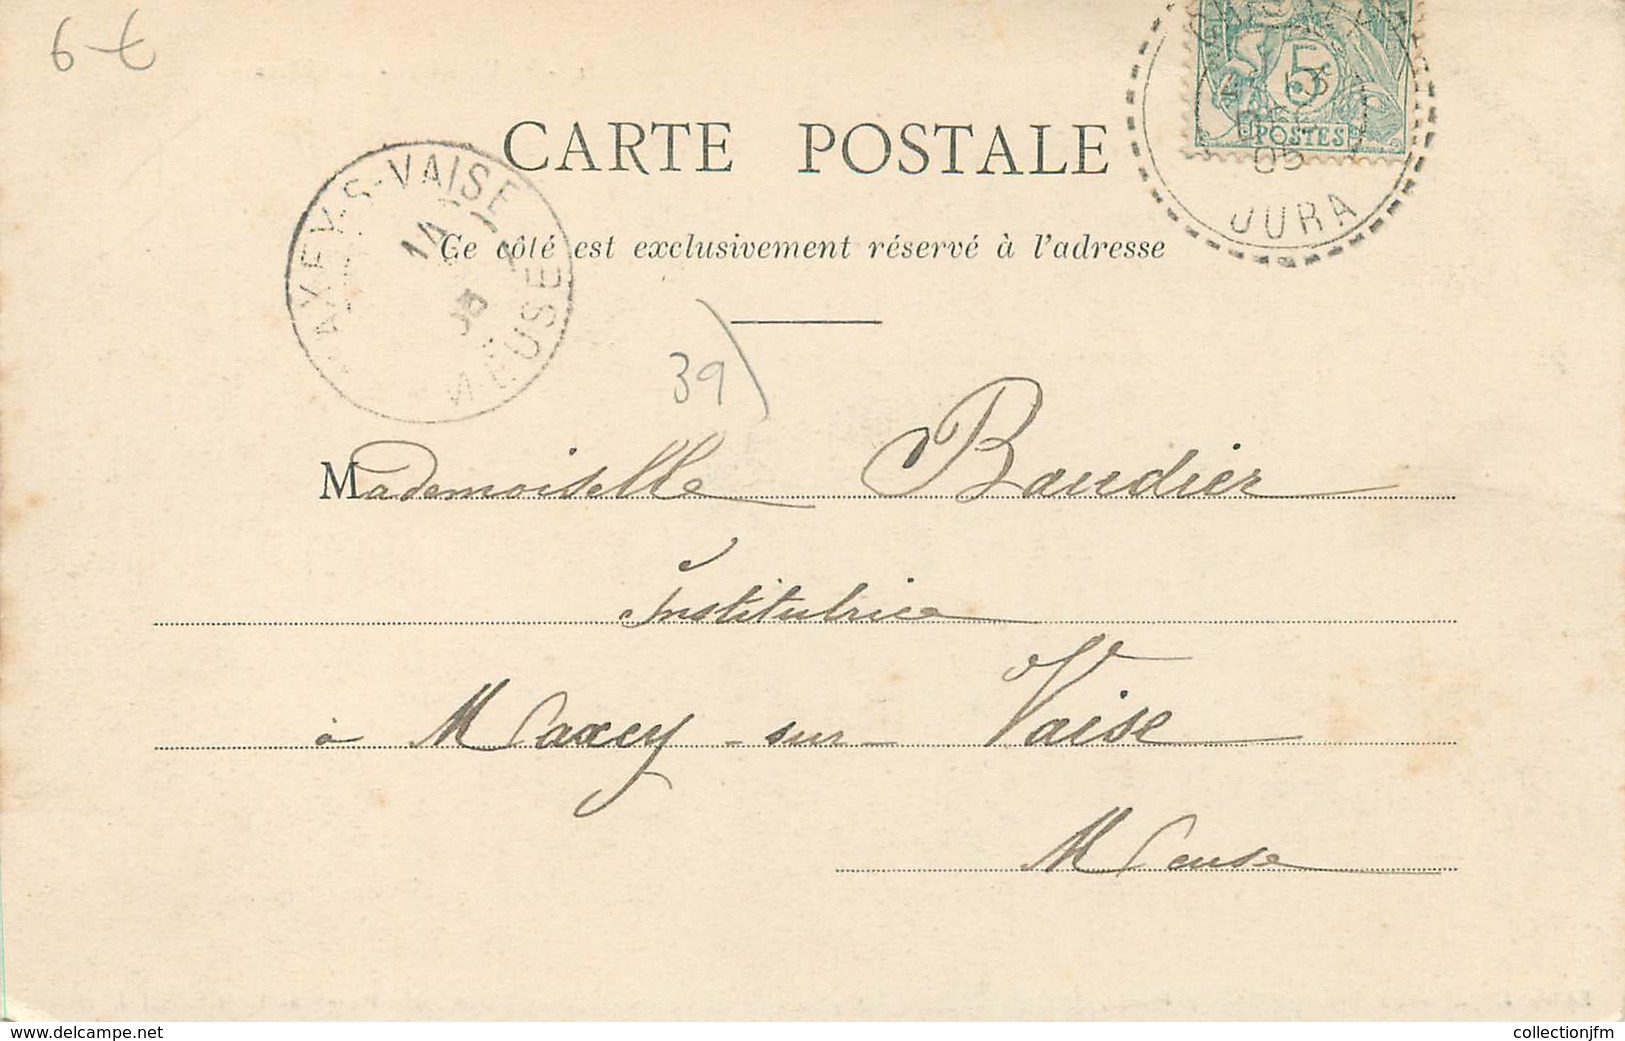 6 €
CARTE POSTALE
5
POSTES
05
JURA
AXEY-S-VAISE
14
05
MEUSE
Ce côté est exclusivement réservé à l'adresse
39
Mademoiselle Baudier
Institutrice
à Maxey-sur-Vaise
Meuse
www.delcampe.net
collectionjfm